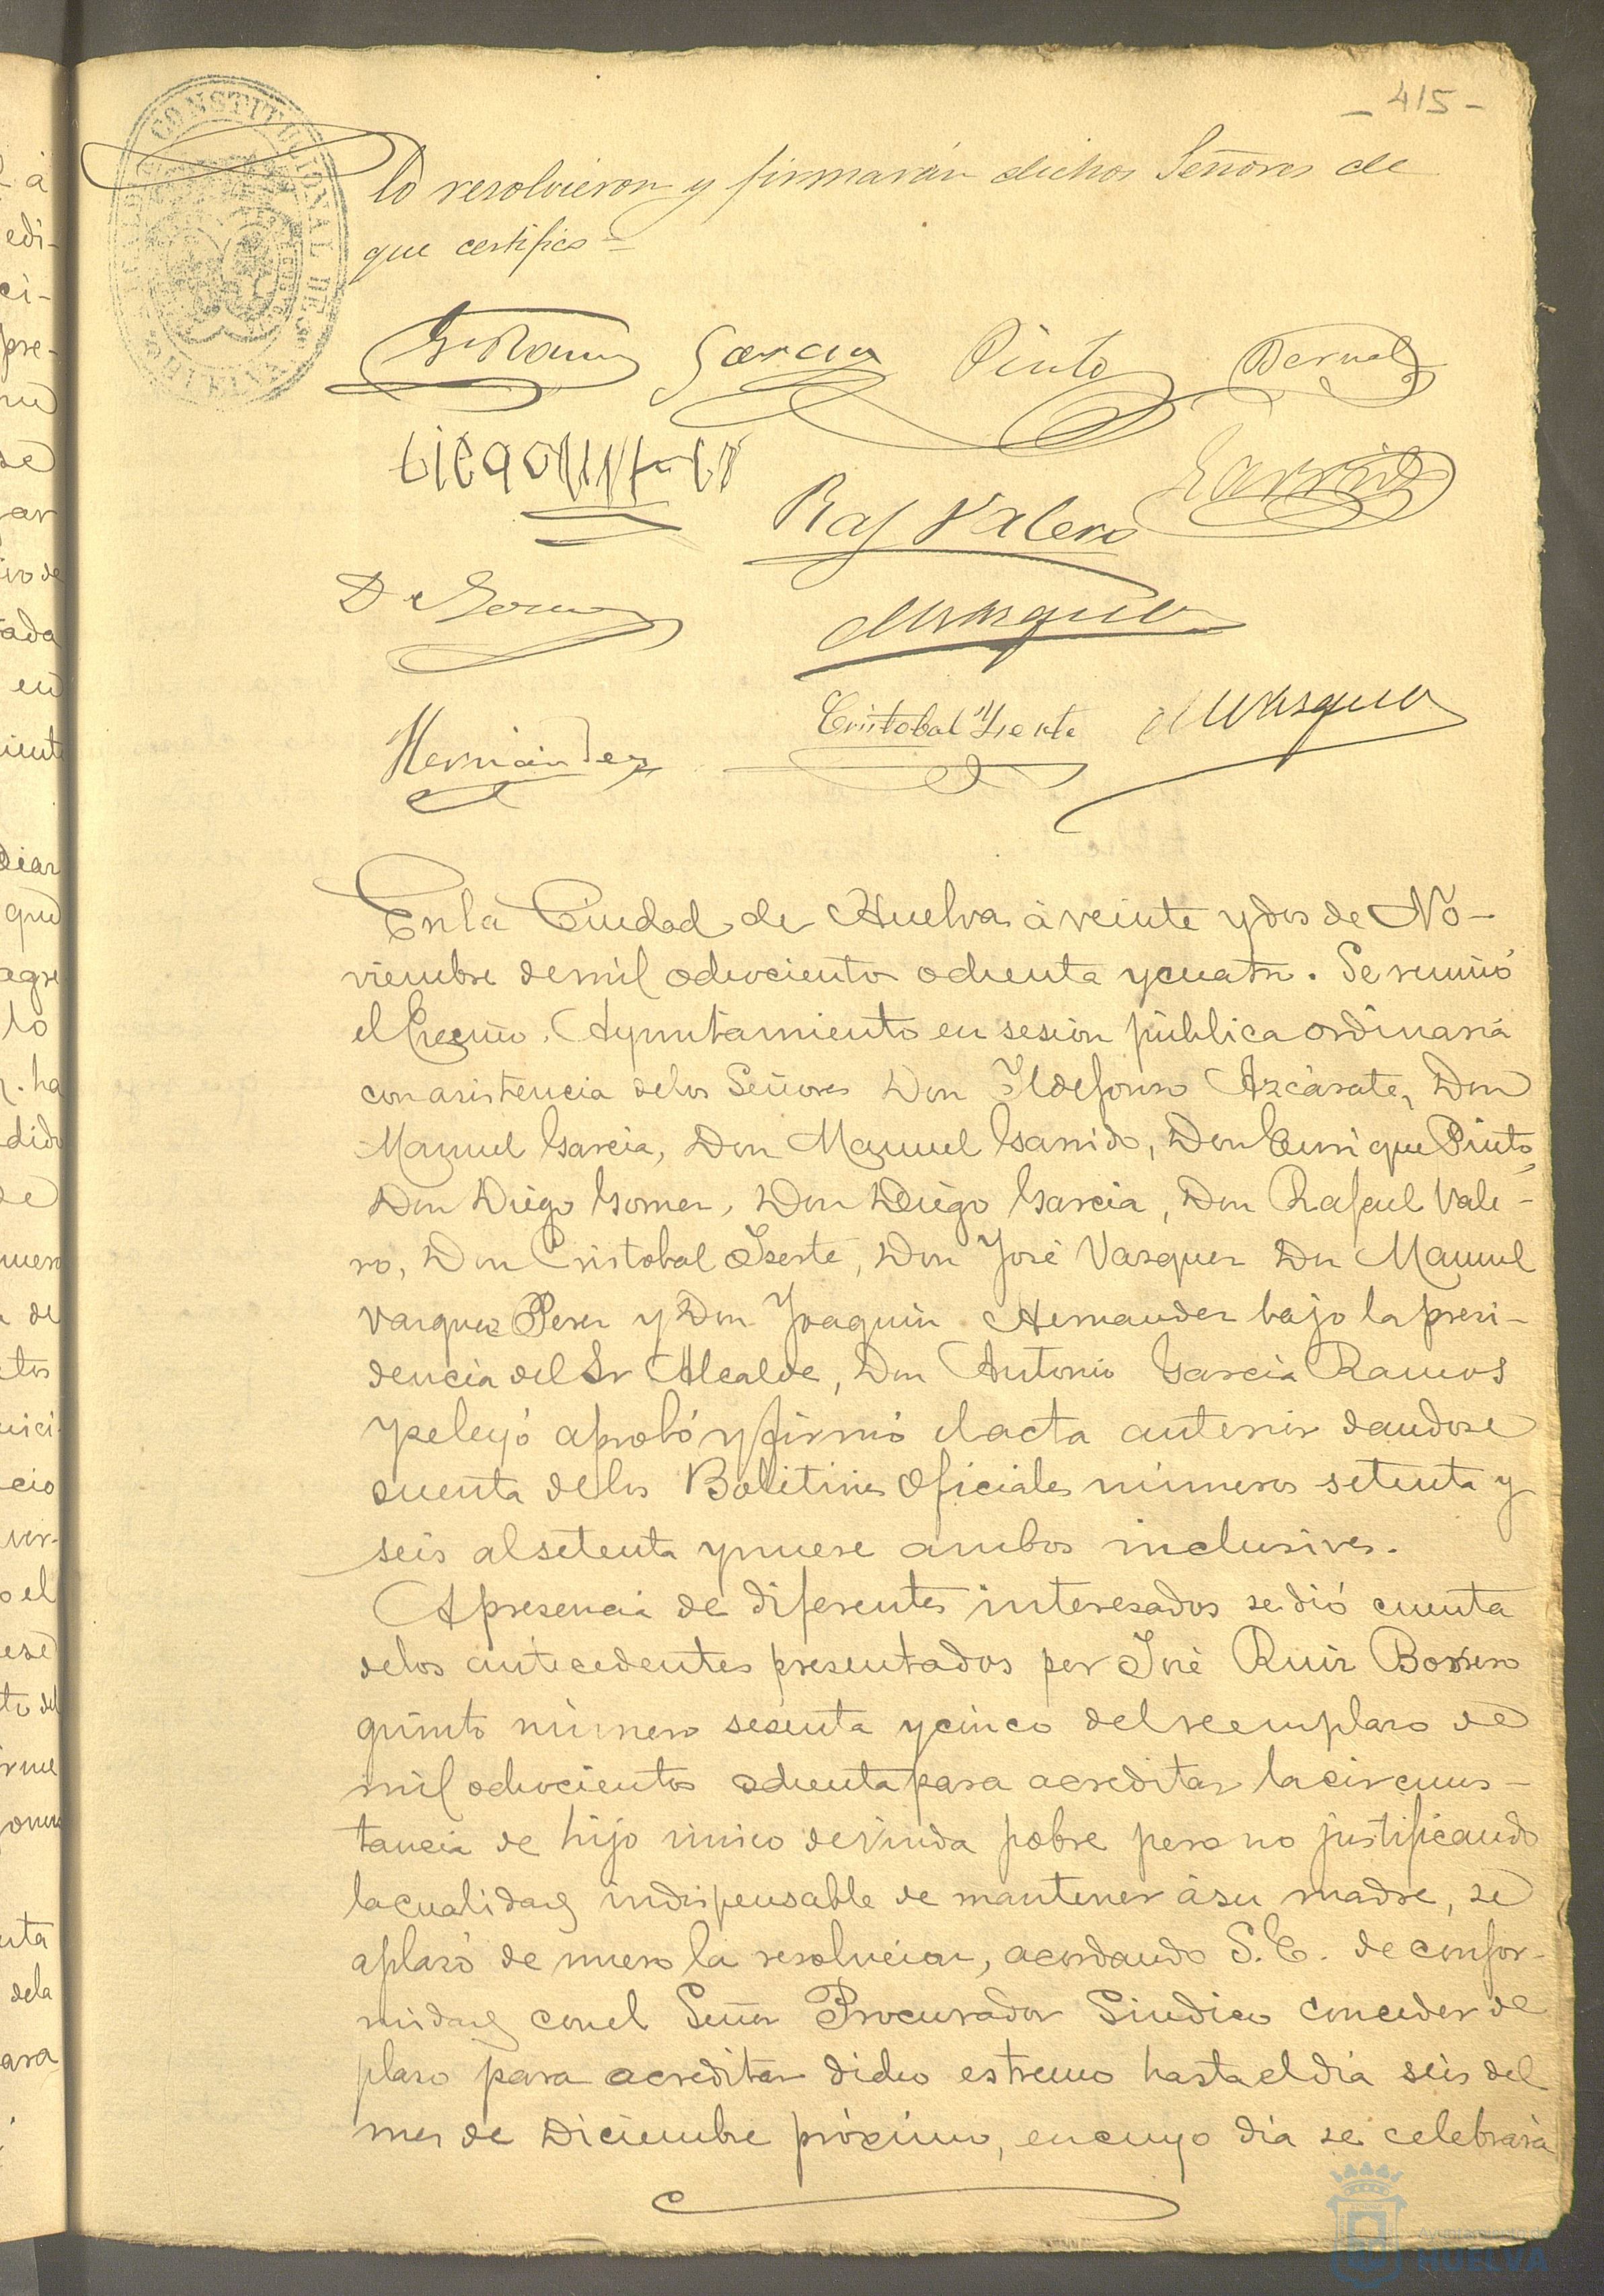 - 415 -
lo resolvieron y firmarán dichos Señores de
que certifico =
Garcia Pinto Bernal
Garrido
Raf Valero
D Gomez
MVasquez
Hernández Cristobal Yserte MVasquez
En la Ciudad de Huelva á veinte y dos de No-
viembre de mil ochocientos ochenta y cuatro. Se reunió
el Excmo. Ayuntamiento en sesion pública ordinaria
con asistencia de los Señores Don Ildefonso Azcárate, Don
Manuel Garcia, Don Manuel Garrido, Don Enrique Pinto,
Don Diego Gomez, Don Diego Garcia, Don Rafael Vale-
ro, Don Cristobal Yserte, Don José Vazquez Don Manuel
Vazquez Perez y Don Joaquin Hernandez bajo la presi-
dencia del Sr Alcalde, Don Antonio Garcia Ramos
y se leyó aprobó y firmó el acta anterior dandose
cuenta de los Boletines Oficiales números setenta y
seis al setenta y nueve ambos inclusives.
A presencia de diferentes interesados se dió cuenta
de los antecedentes presentados por José Ruiz Borrero
quinto número sesenta y cinco del reemplazo de
mil ochocientos ochenta para acreditar la circuns-
tancia de hijo único de viuda pobre pero no justificando
la cualidad indispensable de mantener á su madre, se
aplazó de nuevo la resolucion, acordando S. E. de confor-
midad con el Señor Procurador Sindico conceder de
plazo para acreditar dicho estremo hasta el dia seis del
mes de Diciembre próximo, en cuyo dia se celebrará
HUELVA